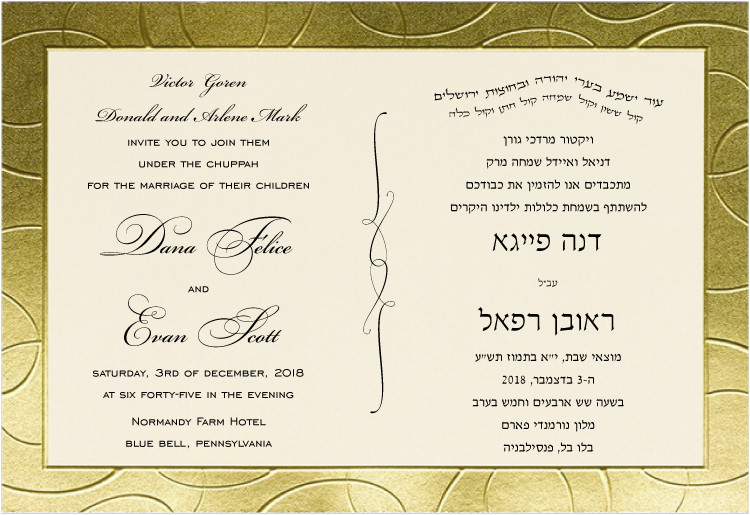 Victor Goren
Donald and Arlene Mark
INVITE YOU TO JOIN THEM
UNDER THE CHUPPAH
FOR THE MARRIAGE OF THEIR CHILDREN
Dana Felice
AND
Evan Scott
SATURDAY, 3RD OF DECEMBER, 2018
AT SIX FORTY-FIVE IN THE EVENING
NORMANDY FARM HOTEL
BLUE BELL, PENNSYLVANIA
עוד ישמע בערי יהודה ובחוצות ירושלים
קול ששון וקול שמחה קול חתן וקול כלה
ויקטור מרדכי גורן
דניאל ואיידל שמחה מרק
מתכבדים אנו להזמין את כבודכם
להשתתף בשמחת כלולות ילדינו היקרים
דנה פייגא
עב״ל
ראובן רפאל
מוצאי שבת, י״א בתמוז תשע״ע
ה-3 בדצמבר, 2018
בשעה שש ארבעים וחמש בערב
מלון נורמנדי פארם
בלו בל, פנסילבניה